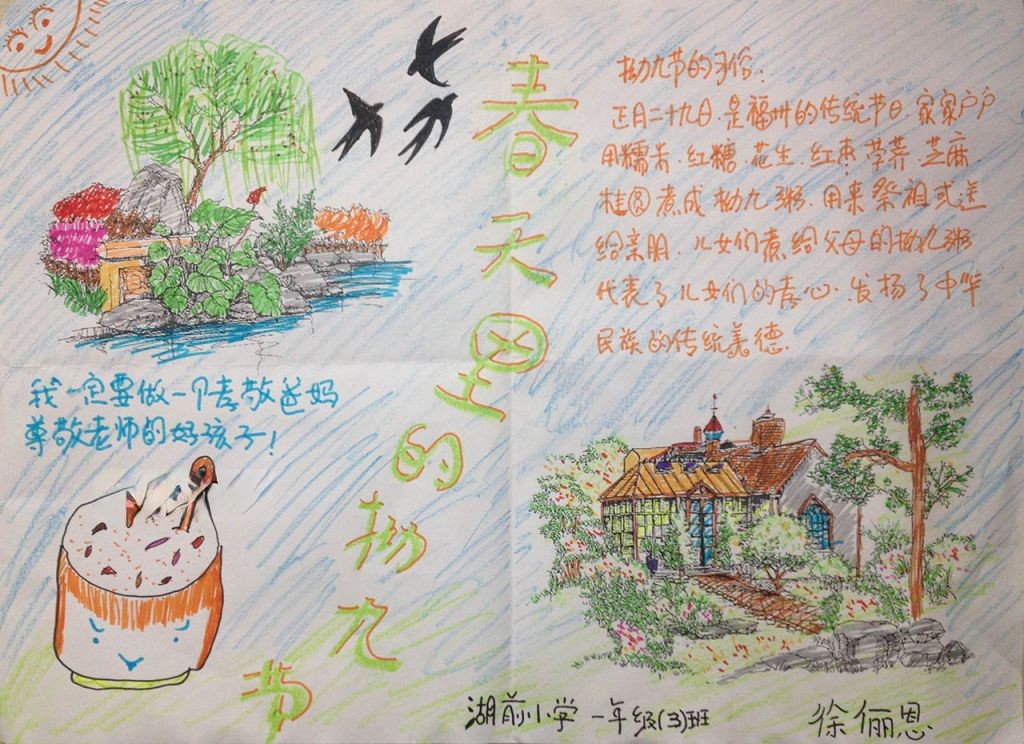 春天里的拗九节
拗九节的习俗:
正月二十九日.是福州的传统节日.家家户户
用糯米.红糖.花生.红枣.荸荠.芝麻.
桂圆煮成拗九粥.用来祭祖或送
给亲朋.儿女们煮给父母的拗九粥
代表了儿女们的孝心.发扬了中华
民族的传统美德.
我一定要做一个孝敬爸妈
尊敬老师的好孩子!
湖前小学 一年级(3)班 徐俪恩